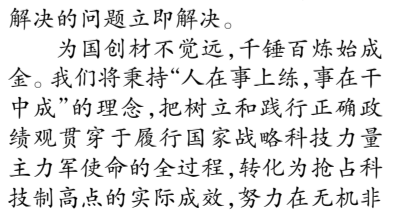 解决的问题立即解决。
为国创材不觉远,千锤百炼始成
金。我们将秉持“人在事上练,事在干
中成”的理念,把树立和践行正确政
绩观贯穿于履行国家战略科技力量
主力军使命的全过程,转化为抢占科
技制高点的实际成效,努力在无机非